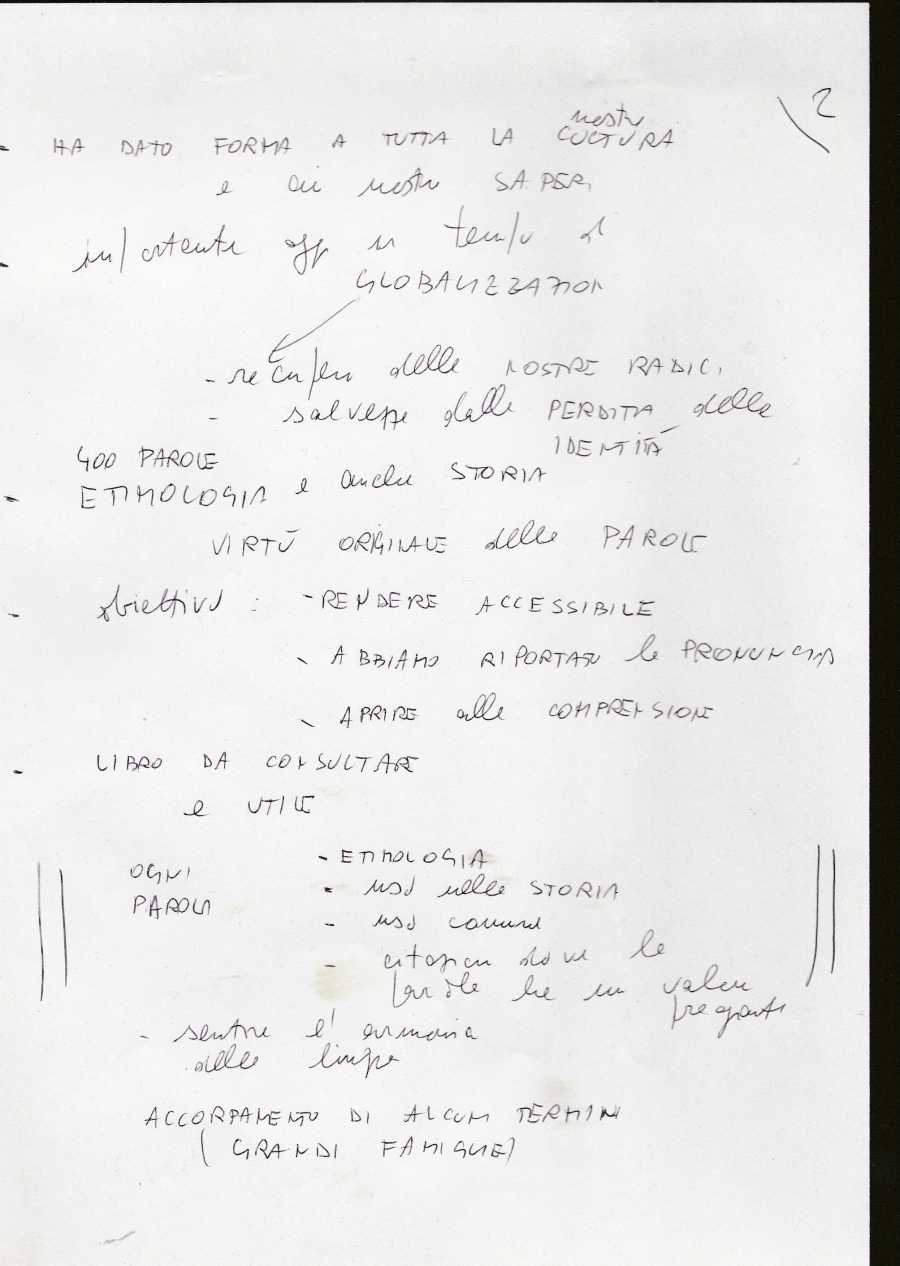 2
nostra
- HA DATO FORMA A TUTTA LA CULTURA
e ai nostri SAPERI
- importante oggi in tempo di
GLOBALIZZAZION
- recupero delle NOSTRE RADICI
- salvezza dalla PERDITA della
IDENTITÀ
400 PAROLE
- ETIMOLOGIA e anche STORIA
VIRTÙ ORIGINALE delle PAROLE
- obiettivo : - RENDERE ACCESSIBILE
- ABBIAMO RIPORTATO la PRONUNCIA
- APRIRE alla COMPRENSIONE
- LIBRO DA CONSULTARE
e UTILE
OGNI - ETIMOLOGIA
PAROLA - uso nella STORIA
- uso comune
- citazioni dove la
parola ha un valore
pregnante
- sentire l'armonia
della lingua
ACCORPAMENTO DI ALCUNI TERMINI
(GRANDI FAMIGLIE)